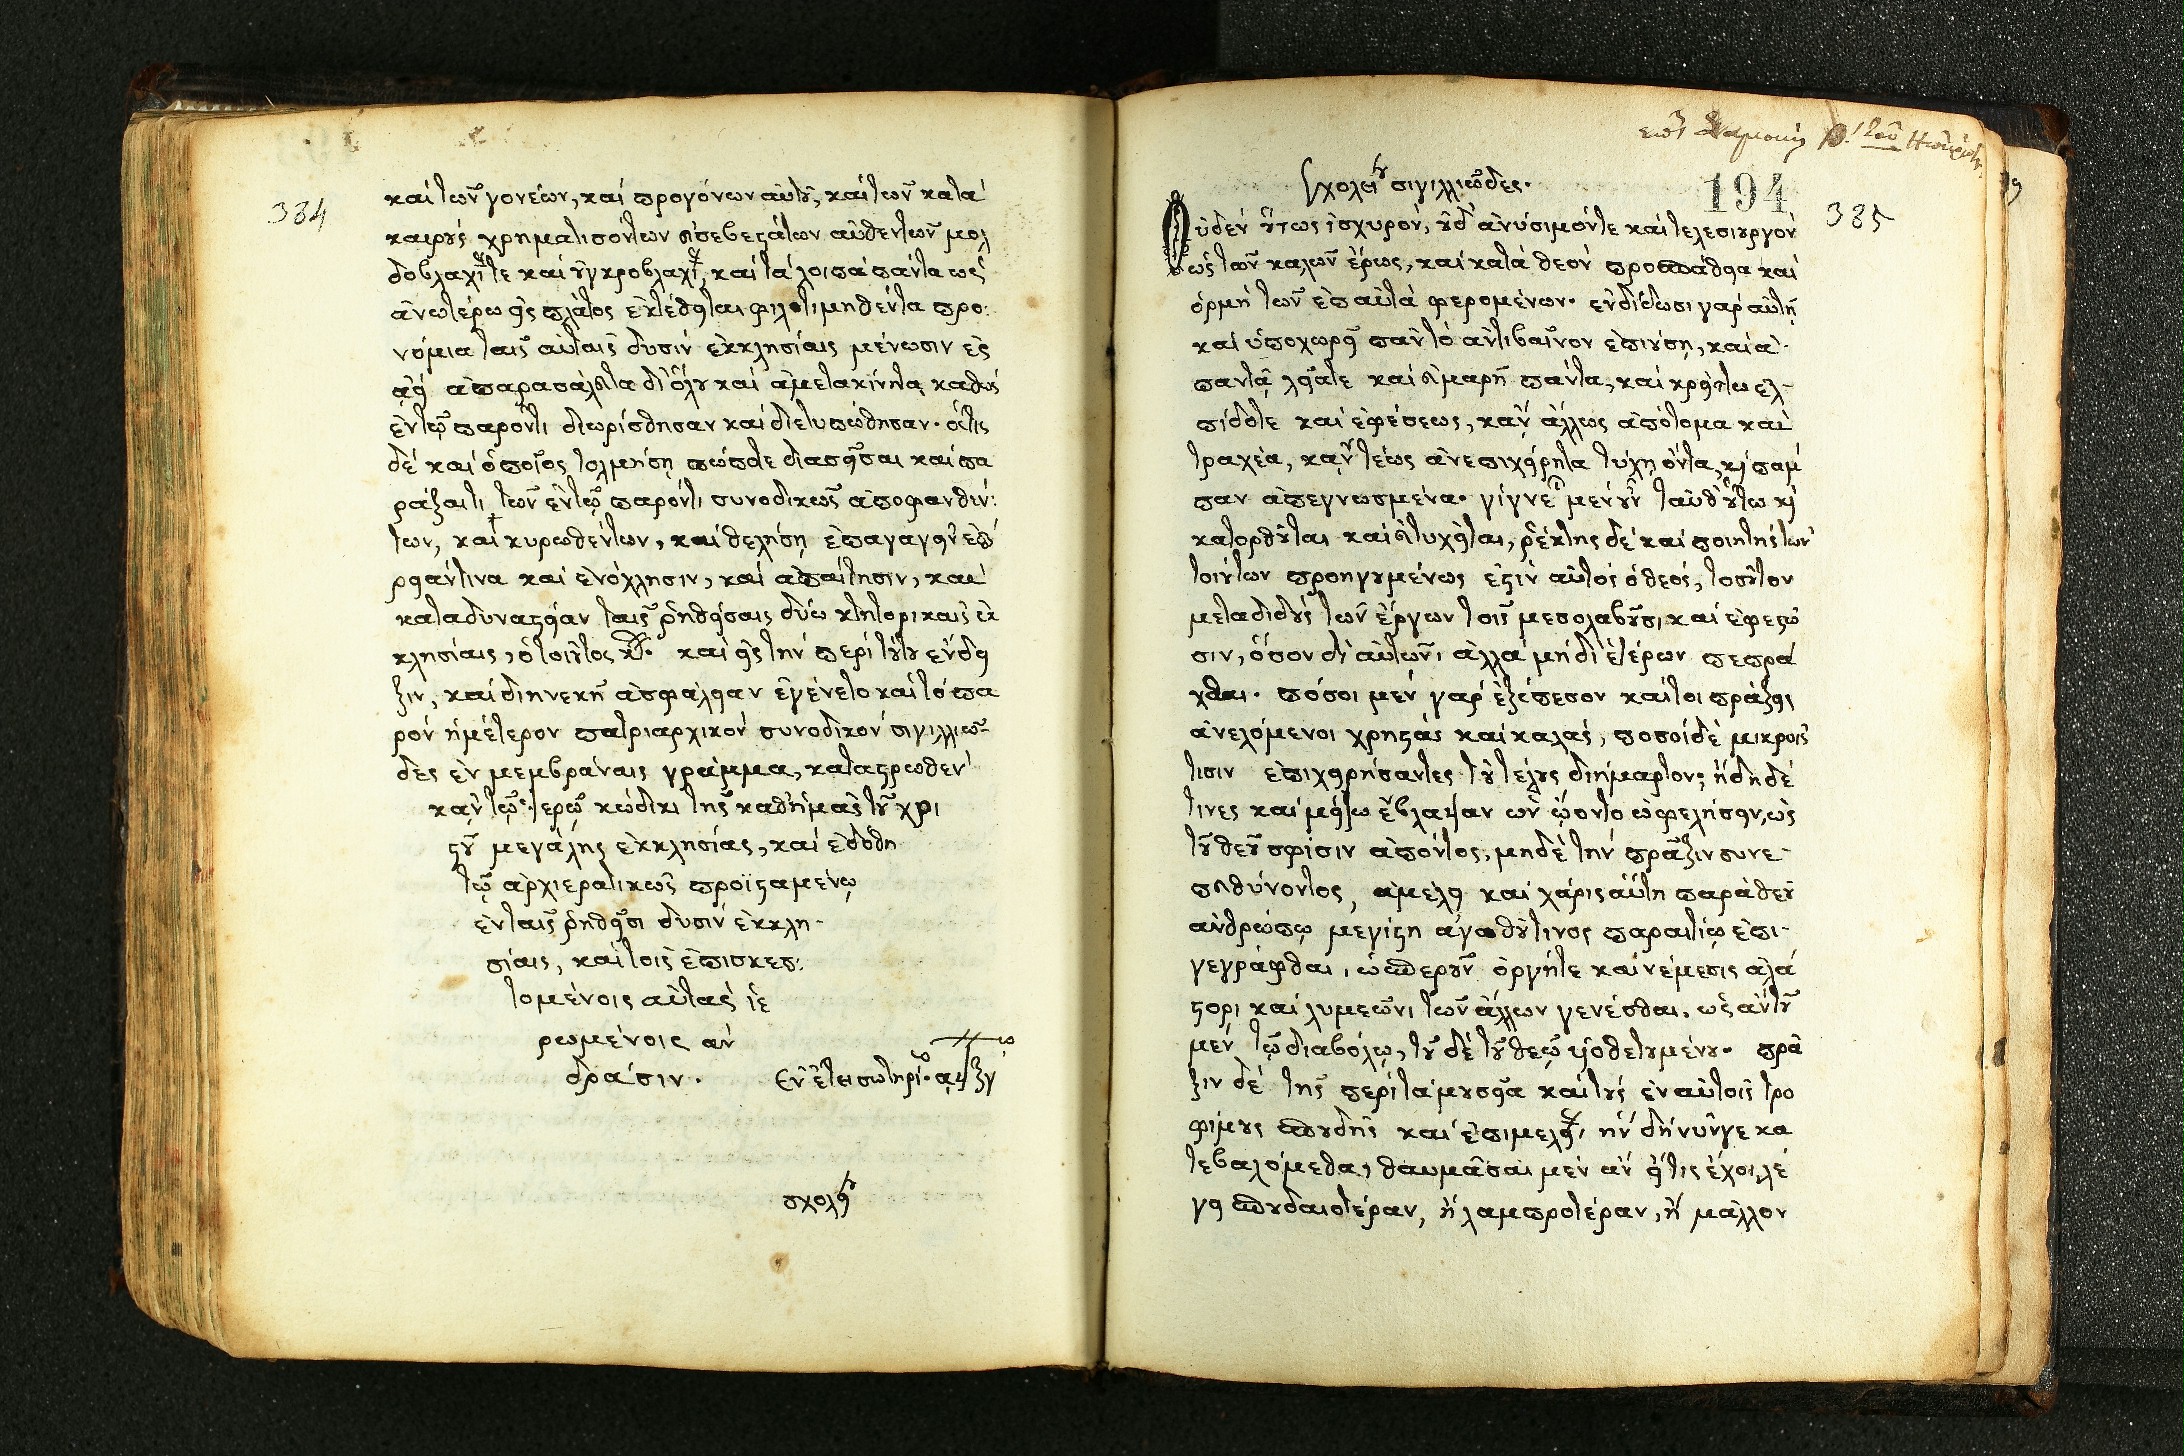 384
καὶ τῶν γονέων, καὶ προγόνων αὐτοῦ, καὶ τῶν κατὰ
καιροὺς χρηματισόντων εὐσεβεστάτων αὐθεντῶν μολ
δοβλαχί τε καὶ οὐγκροβλαχί, καὶ τὰ λοιπὰ πάντα ὡς
ἀνωτέρω εἰς πλάτος ἐκτέθειται φιλοτιμηθέντα προ:
νόμια ταῖς αὐταῖς δυσὶν ἐκκλησίαις μένωσιν ἐς
ἀεὶ ἀπαρασάλευτα δι' ὅλου καὶ ἀμετακίνητα, καθὼς
ἐν τῷ παρόντι διωρίσθησαν καὶ διετυπώθησαν. ὅστις
δὲ καὶ ὁποῖος τολμήσῃ πώποτε διασεῖσαι καὶ πα
ράξαι τι τῶν ἐν τῷ παρόντι συνοδικῶς ἀποφανθέν:
των, καὶ κυρωθέντων, καὶ θελήσῃ ἐπαγαγεῖν ἐπή
ρειάν τινα καὶ ἐνόχλησιν, καὶ ἀπαίτησιν, καὶ
καταδυναστείαν ταῖς ῥηθείσαις δύω κτητορικαῖς ἐκ
κλησίαις, ὁ τοιοῦτος
καὶ εἰς τὴν περὶ τούτου ἔνδει
ξιν, καὶ διηνεκῆ ἀσφάλειαν ἐγένετο καὶ τὸ πα
ρὸν ἡμέτερον πατριαρχικὸν συνοδικὸν σιγιλλιῶ-
δες ἐν μεμβράναις γράμμα, καταστρωθὲν
κἀν τῷ ἱερῷ κώδικι τῆς καθ' ἡμᾶς τοῦ χρι
στοῦ μεγάλης ἐκκλησίας, καὶ ἐδόθη
τῷ ἀρχιερατικῶς προϊσταμένῳ
ἐν ταῖς ῥηθείσι δυσὶν ἐκκλη-
σίαις, καὶ τοῖς ἐπισκεπ:
τομένοις αὐτὰς ἱε
ρωμένοις ἀν
δράσιν. Ἐν ἔτει σωτηρί. αψξγ
σχολεί
194
385
Σχολεί σιγιλλιῶδες.
Οὐδὲν οὕτως ἰσχυρὸν, οὐδ' ἀνύσιμόν τε καὶ τελεσιουργὸν
ὡς τῶν καλῶν ἔρως, καὶ κατὰ θεὸν προσπάθεια καὶ
ὁρμὴ τῶν ἐπ' αὐτὰ φερομένων. ἐνδίδωσι γὰρ αὐτῇ
καὶ ὑποχωρεῖ πᾶν τὸ ἀντιβαῖνον ἐπιούσῃ, καὶ ἁ-
παντᾷ λεῖά τε καὶ εὐμαρῆ πάντα, καὶ κρείττω ἐλ-
πίδος τε καὶ ἐφέσεως, κἂν ἄλλως ἀπότομα καὶ
τραχέα, κἂν τέως ἀνεπιχείρητα τύχῃ ὄντα, καὶ παμ
παν ἀπεγνωσμένα. γίγνε μὲν οὖν ταῦθ' οὕτω καὶ
κατορθοῦται καὶ εὐτυχεῖται, ῥέκτης δὲ καὶ ποιητὴς τῶν
τοιούτων προηγουμένως ἐστὶν αὐτὸς ὁ θεός, τοσοῦτον
μεταδιδοὺς τῶν ἔργων τοῖς μεσολαβοῦσι, καὶ ἐφεστῶ
σιν, ὅσον δι' αὐτῶν, ἀλλὰ μὴ δι' ἑτέρων πεπρᾶ
χθαι. πόσοι μὲν γὰρ ἐξέπεσον καίτοι πράξεις
ἀνελόμενοι χρηστὰς καὶ καλὰς, ποσοὶ δὲ μικροῖς
τισιν ἐπιχειρήσαντες τοῦ τέλους διήμαρτον; ἤδη δέ
τινες καὶ μείζω ἔβλαψαν ὧν ᾤοντο ὠφελήσειν, ὡς
τοῦ θεοῦ σφίσιν ἀπόντος, μηδὲ τὴν πρᾶξιν συνε-
πευθύνοντος, ἀμέλει καὶ χάρις αὕτη παρὰ θεοῦ
ἀνθρώπῳ μεγίστη ἀγαθοῦ τινος παραιτίῳ ἐπι-
γεγράφθαι, ὥσπερ οὖν ὀργή τε καὶ νέμεσις ἀλά
στορι καὶ λυμεῶνι τῶν ἄλλων γενέσθαι. ὡς ἂν τοῦ
μὲν τῷ διαβόλῳ, τοῦ δὲ τοῦ θεῷ υἱοθετουμένου. πρᾶ
ξιν δὲ τῆς περὶ τὰ μουσεῖα καὶ τοὺς ἐν αὐτοῖς τρο
φίμους σπουδῆς καὶ ἐπιμελεί, ἣν δὴ νῦν γε κα
τεβαλόμεθα, θαυμάσαι μὲν ἂν εἴ τις ἔχοι λέ
γειν σπουδαιοτέραν, ἢ λαμπροτέραν, ἢ μᾶλλον